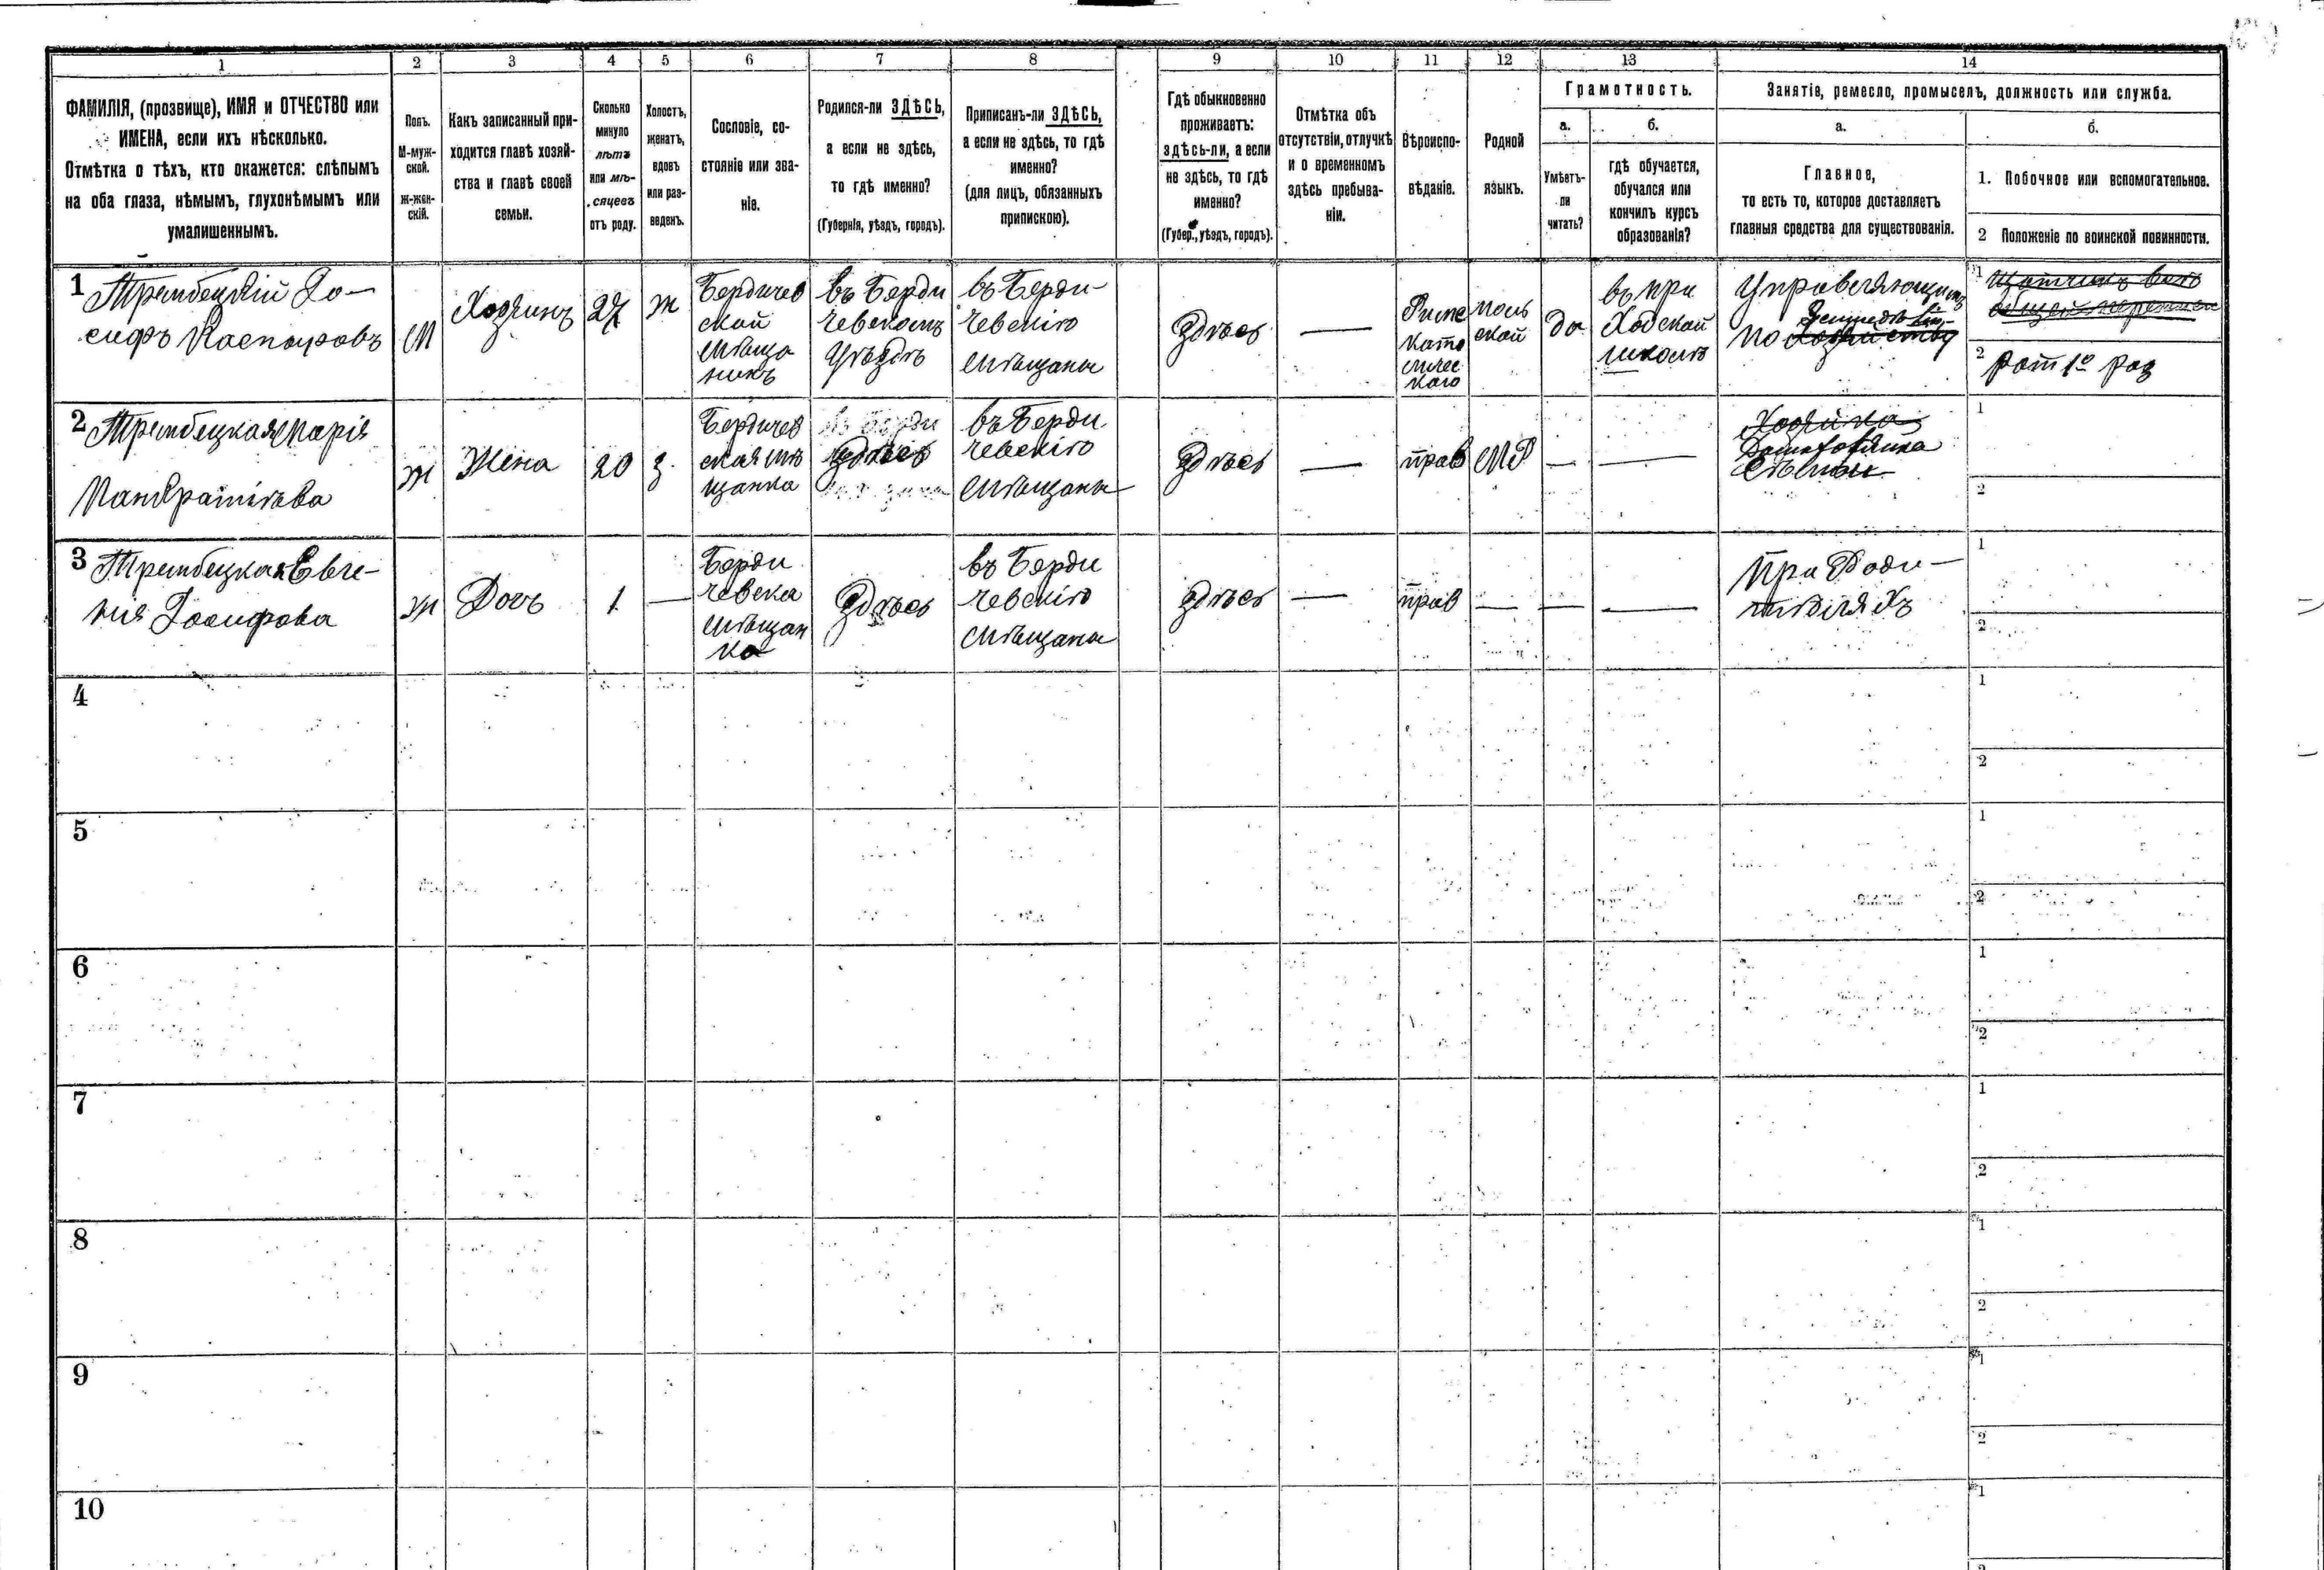 1 2 3 4 5 6 7 8 9 10 11 12 13 14
ФАМИЛІЯ, (прозвище), ИМЯ и ОТЧЕСТВО или
ИМЕНА, если ихъ нѣсколько.
Отмѣтка о тѣхъ, кто окажется: слѣпымъ
на оба глаза, нѣмымъ, глухонѣмымъ или
умалишеннымъ.
Полъ.
М-муж-
ской.
Ж-жен-
скій.
Какъ записанный при-
ходится главѣ хозяй-
ства и главѣ своей
семьи.
Сколько
минуло
лѣтъ
или мѣ-
сяцевъ
отъ роду.
Холостъ,
женатъ,
вдовъ
или раз-
веденъ.
Сословіе, со-
стояніе или зва-
ніе.
Родился-ли ЗДѢСЬ,
а если не здѣсь,
то гдѣ именно?
(Губернія, уѣздъ, городъ).
Приписанъ-ли ЗДѢСЬ,
а если не здѣсь, то гдѣ
именно?
(для лицъ, обязанныхъ
припискою).
Гдѣ обыкновенно
проживаетъ:
здѣсь-ли, а если
не здѣсь, то гдѣ
именно?
(Губер., уѣздъ, городъ).
Отмѣтка объ
отсутствіи, отлучкѣ
и о временномъ
здѣсь пребыва-
ніи.
Вѣроиспо-
вѣданіе.
Родной
языкъ.
Грамотность.
а.
Умѣетъ-
ли
читать?
б.
гдѣ обучается,
обучался или
кончилъ курсъ
образованія?
Занятіе, ремесло, промыселъ, должность или служба.
а.
Главное,
то есть то, которое доставляетъ
главныя средства для существованія.
б.
1. Побочное или вспомогательное.
2 Положеніе по воинской повинности.
1 Трембецкій Іо-
сифъ Каспаровъ
М
Хозяинъ
27
ж
Бердичев
ской
мѣща
нинъ
въ Берди
чевскомъ
уѣздѣ
въ Берди-
чевскіго
мѣщаны
Здѣсь
—
Римс
като
личес
каго
поль
ской
да
въ при
ходской
школѣ
Управляющимъ
по
1
2
рат 1о раз
2 Трембецкая Марія
Панкратіѣва
Ж
Жена
20
з.
Бердичев
ская мѣ
щанка
здѣсь
въ Берди
чевскіго
мѣщаны
Здѣсь
—
прав
МР
—
—
Хозяйка
1
2
3 Трембецкая Евге-
нія Іосифова
Ж
Дочь
1
—
Берди
чевска
мѣщан
ка
Здѣсь
въ Берди
чевскіго
мѣщаны
Здѣсь
—
прав
—
—
—
При Роди-
тѣляхъ
1
2
4
1
2
5
1
2
6
1
2
7
1
2
8
1
2
9
1
2
10
1